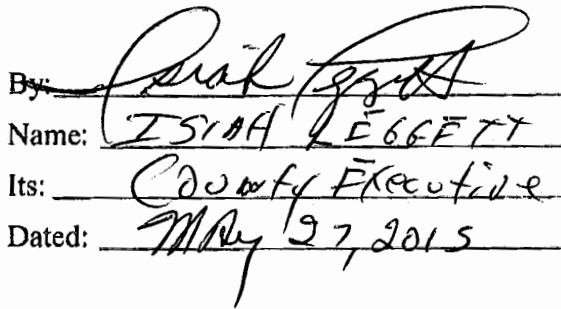 By: Isiah Leggett
Name: ISIAH LEGGETT
Its: County Executive
Dated: May 27, 2015